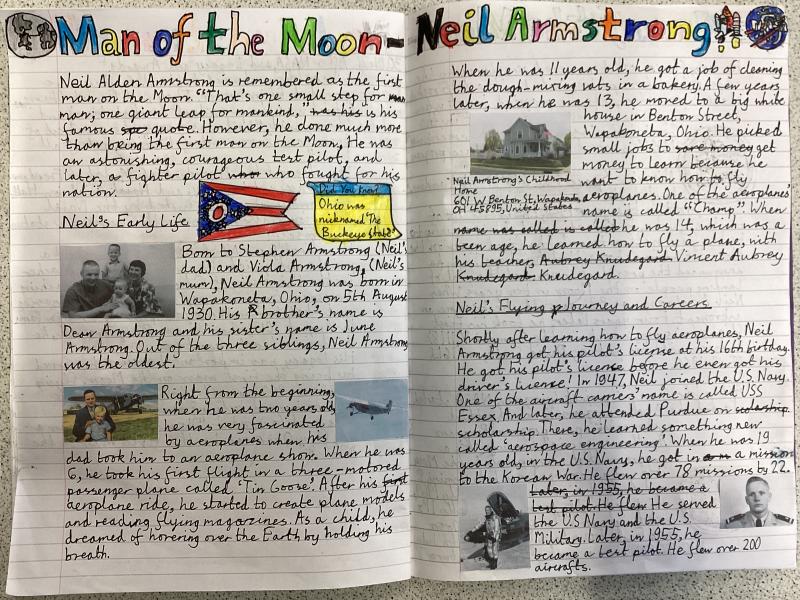 Man of the Moon-
Neil Alden Armstrong is remembered as the first
man on the Moon. "That's one small step for
man; one giant leap for mankind," was his is his
famous quote. However, he done much more
than being the first man on the Moon, He was
an astonishing, courageous test pilot, and
later, a fighter pilot who who fought for his
nation.
Did You Know
Ohio was
nicknamed 'The
Buckeye State'?
Neil's Early Life
Born to Stephen Armstrong (Neil's
dad) and Viola Armstrong, (Neil's
mum), Neil Armstrong was born in
Wapakoneta, Ohio, on 5th August
1930. His brother's name is
Dean Armstrong and his sister's name is June
Armstrong. Out of the three siblings, Neil Armstrong
was the oldest.
Right from the beginning,
when he was two years old,
he was very fascinated
by aeroplanes when his
dad took him to an aeroplane show. When he was
6, he took his first flight in a three-motored
passenger plane called 'Tin Goose'. After his first
aeroplane ride, he started to create plane models
and reading flying magazines. As a child, he
dreamed of hovering over the Earth by holding his
breath.
Neil Armstrong!!
When he was 11 years old, he got a job of cleaning
the dough-mixing vats in a bakery. A few years
later, when he was 13, he moved to a big white
house in Benton Street,
Wapakoneta, Ohio. He picked
small jobs to save money get
money to learn because he
want to know how to fly
aeroplanes. One of the aeroplane's
name is called "Champ". When
Neil Armstrong's Childhood
Home
601 W Benton St, Wapakoneta,
OH 45895, United States
name was called is called he was 14, which was a
teen age, he learned how to fly a plane, with
his teacher, Aubrey Knudegard Vincent Aubrey
Knudegard. Knudegard.
Neil's Flying Journey and Careers
Shortly after learning how to fly aeroplanes, Neil
Armstrong got his pilot's license at his 16th birthday.
He got his pilot's licence before he even got his
driver's license! In 1947, Neil joined the U.S. Navy.
One of the aircraft carriers' name is called USS
Essex. And later, he attended Purdue on scolarship.
scholarship. There, he learned something new
called 'aerospace engineering'. When he was 19
years old, in the U.S. Navy, he got in a mission
to the Korean War. He flew over 78 missions by 22.
Later, in 1955, he became a
test pilot. He flew He served
the U.S Navy and the U.S.
Military. Later, in 1955, he
became a test pilot. He flew over 200
aircrafts.